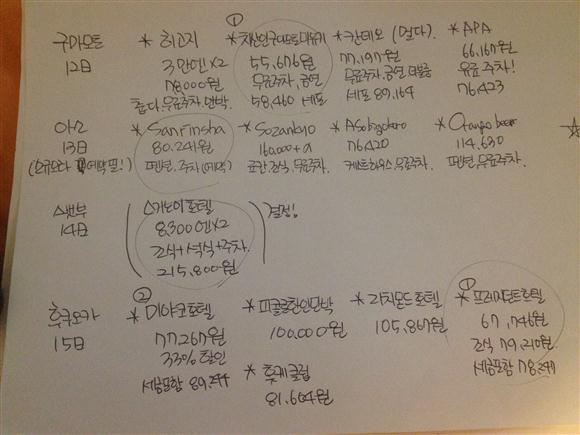 구마모토
12日
* 최고지
3만엔×2
78000원
춥다. 무료주차. 만박.
①
* 치산인구마모토미유키
55,676원
무료주차, 공연
58,460 세포
* 칸데오 (멀다).
77,197원
무료주차. 공연
세포 89,164
* APA
66,167원
유료 주차!
76,423
아소
13日
* Sanrinsha
80.241원
펜션. 주차 (예약)
* Sozankyo
160,000+α
조식, 무료주차.
* ASobigokoro
76,420
게스트하우스 무료주차.
114.630
펜션. 무료주차.
벳부
14日
스기노이호텔
8,300엔×2
조식+석식+주차.
215,800원
결정!
후쿠오카
15日
②
* 미야코호텔
77.267원
33% 할인
세금포함 89,244
* 피콜로한인민박
100,000원
* 리치몬드호텔
105,867원
①
* 프레지던트호텔
67,746원
조식 79,210원
세금포함 78.247
81.604원